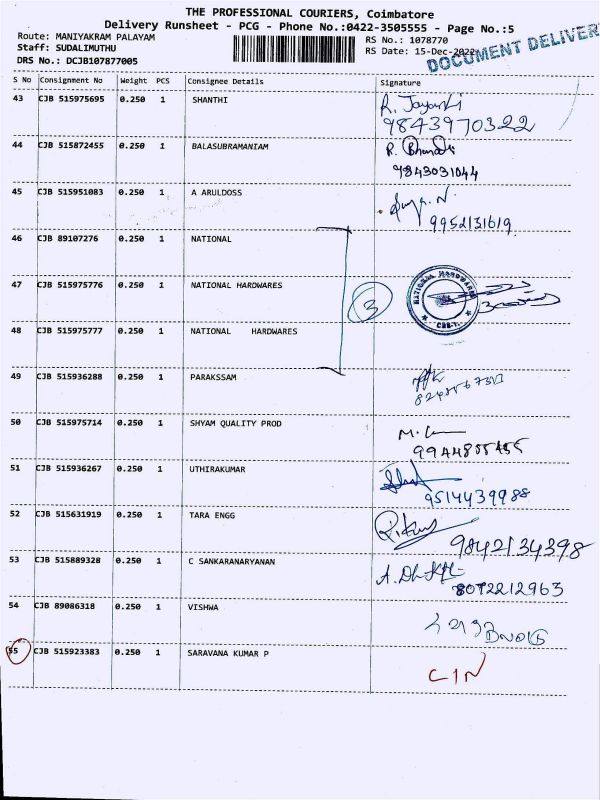 THE PROFESSIONAL COURIERS, Coimbatore
Delivery Runsheet - PCG - Phone No.:0422-3505555 - Page No.:5
Route: MANIYAKRAM PALAYAM
RS No.: 1078770
Staff: SUDALIMUTHU
RS Date: 15-Dec-2022
DOCUMENT DELIVER
DRS No.: DCJB107877005
S No Consignment No Weight PCS Consignee Details Signature
43 CJB 515975695 0.250 1 SHANTHI
R. Jayanthi
9843970322
44 CJB 515872455 0.250 1 BALASUBRAMANIAM
R.
9843031044
45 CJB 515951083 0.250 1 A ARULDOSS
9952131619
46 CJB 89107276 0.250 1 NATIONAL
47 CJB 515975776 0.250 1 NATIONAL HARDWARES
3
NATIONAL HARDWARE
48 CJB 515975777 0.250 1 NATIONAL HARDWARES
49 CJB 515936288 0.250 1 PARAKSSAM
50 CJB 515975714 0.250 1 SHYAM QUALITY PROD
M.
51 CJB 515936267 0.250 1 UTHIRAKUMAR
9514439988
52 CJB 515631919 0.250 1 TARA ENGG
9842134398
53 CJB 515889328 0.250 1 C SANKARANARYANAN
8072212963
54 CJB 89086318 0.250 1 VISHWA
55 CJB 515923383 0.250 1 SARAVANA KUMAR P
CIN